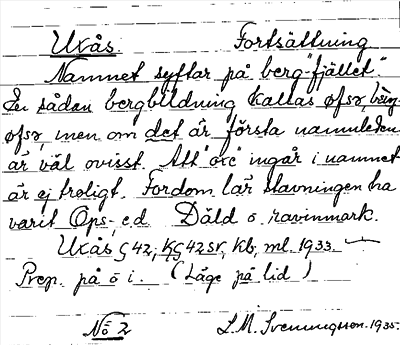 Uxås. Fortsättning
Namnet syftar på berg "fjället".
En sådan bergbildning kallas ofsə, bærg-
ofsə, men om det är första namnleden
är väl ovisst. Att "oxe" ingår i namnet
är ej troligt. Fordom lär stavningen ha
varit Ops-, e.d. Däld o. ravinmark.
Uxås G 42, KG 42 sv, Kb, ml. 1933.
Prep. på o i. (Läge på lid)
No 2 L.M. Svenungsson. 1935.